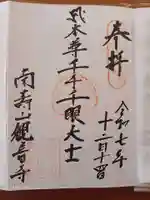 奉拝
令和七年
十二月十四日
本尊千手千眼大士
南寿山観音寺